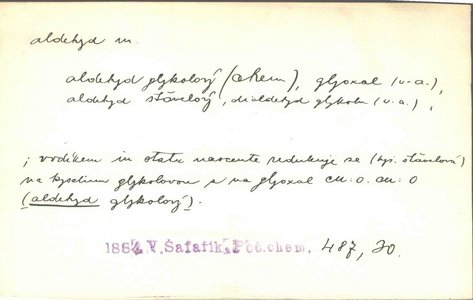 aldehyd m.
aldehyd glykolový (chem), glyoxal (v-a.),
aldehyd šťavelový, dialdehyd glykolu (v.a.),
; vodíkem in statu nascente redukuje se (kys. šťavelová)
na kyselinu glykolovou a na glyoxal CH:O.CH:O
(aldehyd glykolový).
186 V. Šafařík, Poč.chem. 487, 30.